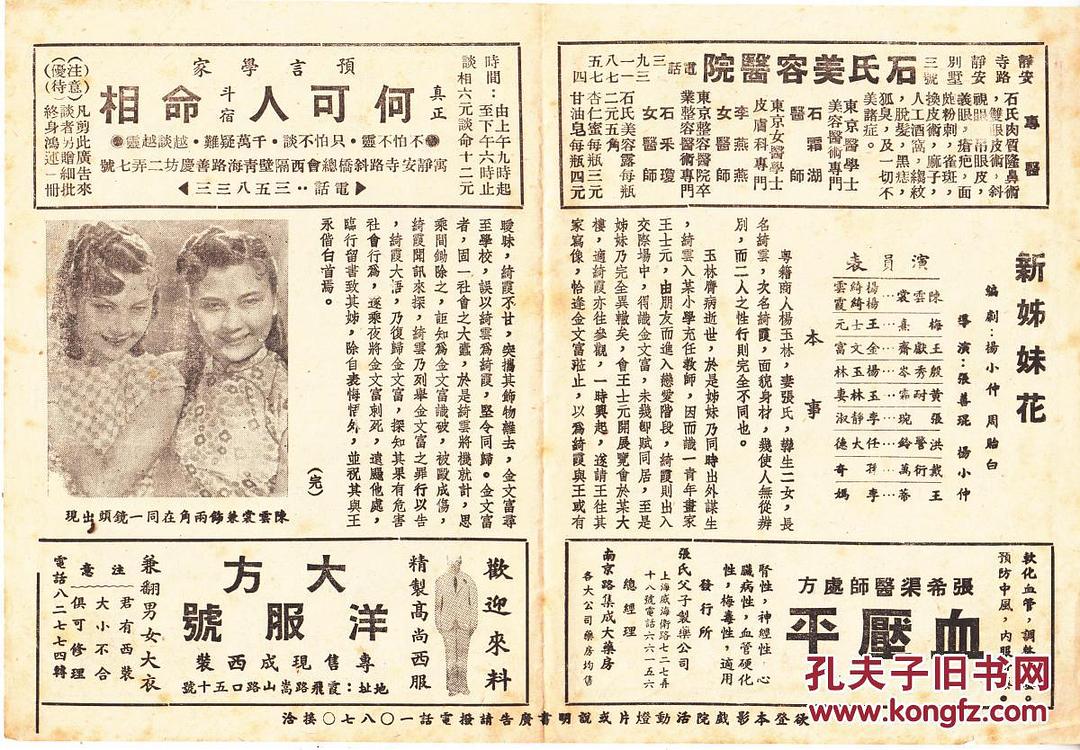 新姊妹花
編劇：楊小仲 周貽白
導演：張善琨 楊小仲
演員表
楊綺雲 楊綺霞…陳雲裳
王士元…梅熹
金文富…王獻齋
楊玉林…殷秀岑
林妻…黃耐霜
李靜淑…張琬
任大德…洪警鈴
李媽…王蕃
本事
粵籍商人楊玉林，妻張氏，韓生二女，長
名綺雲，次名綺霞，面貌身材，幾使人無從辨
別，而二人之性行則完全不同也。
玉林膺病逝世，於是姊妹乃同時出外謀生
，綺雲入某小學充任教師，因而識一青年畫家
王士元，由朋友而進入戀愛階段，綺霞則出入
交際場中，得識金文富，未幾卽賦同居，至是
姊妹乃完全異轍矣，會王士元開展覽會於某大
樓，適綺霞亦往參觀，一時興起，遂請王往其
家寫像，恰逢金文富蒞止，以爲綺霞與王或有
曖昧，綺霞不甘，突攜其飾物離去，金文富尋
至學校，誤以綺雲爲綺霞，堅令同歸。金文富
者，固一社會之大蠹，於是綺雲將機就計，思
乘間鋤除之，詎知爲金文富識破，被毆成傷，
綺霞聞訊來探，綺雲乃列舉金文富之罪行以告
，綺霞大悟，乃復歸金文富，探知其果有危害
社會行爲，遂乘夜將金文富刺死，遺颺他處，
臨行留書致其姊，除自表悔悟外，並祝其與王
永偕白首焉。
（完）
陳雲裳兼飾兩角在同一鏡頭出現
石氏美容醫院
靜安寺路靜安別墅三號
電話 三九三一八七五四
專醫
石氏肉質隆鼻術，雙眼皮術，斜視眼，吊眼皮，義眼，瘡疤，面皰粉刺，雀斑，換皮術，麻子，人工酒窩，縐紋，脫髮，黑痣，狐臭，及一切不美諸症。
東京醫學士
美容術專門
醫師 石霜湖
東京女醫學士
皮膚科專門
女醫師 李燕燕
東京整容醫院卒業整容醫術專門
女醫師 石采瓊
石氏美容露每瓶二元五角
杏仁蜜每瓶三元
甘油皂每瓶四元
預言學家
真正 何可人 斗宿 命相
●不怕不靈・只怕不談・千萬疑難・越談越靈●
寓靜安寺路斜橋總會西隔壁青海路善慶坊二弄七號
◀電話‥三五八三三▶
時間：由上午九時起至下午六時止
談相六元談命十二元
（注意）（優待）
凡剪此廣告來
談者另贈細批
終身鴻運一冊
軟化血管，調整血
預防中風，內服
張希渠醫師處方
血壓平
腎性，神經性，心
臟病性，血管硬化
性，梅毒性，適用
發行所
張氏父子製藥公司
上海威海衛路七二七弄
十八號電話六六一五六
總經理
南京路集成大藥房
各大公司藥房均售
歡迎來料
精製高尚西服
大方
洋服號
專售現成西裝
地址：霞飛路嵩山路口五十號
兼翻男女大衣
注意
君有西裝
大小不合
俱可修理
電話八二七七四轉
欲登本影戲院活動燈片或說明書廣告請撥電話一〇八七〇接洽
孔夫子旧书网
www.kongfz.com